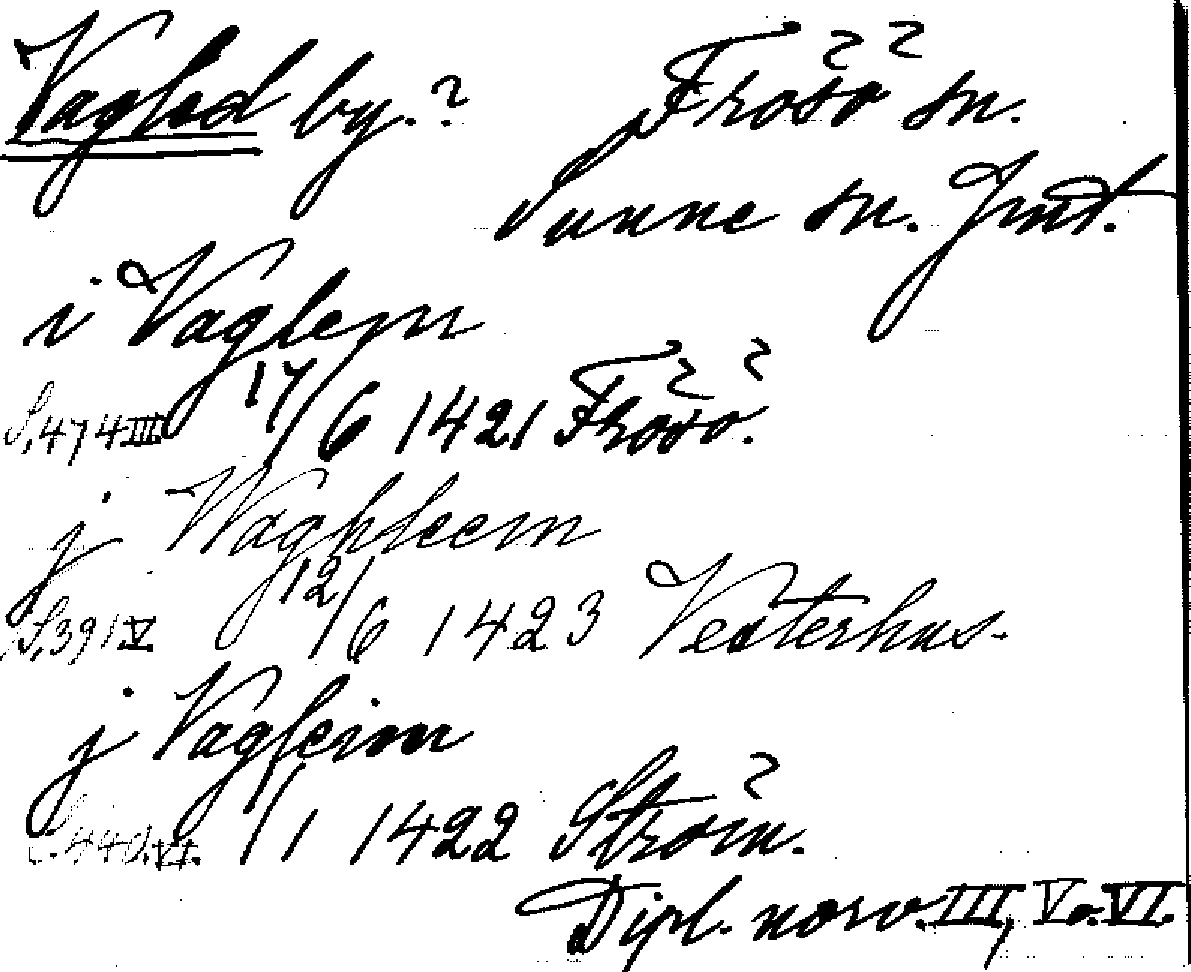 Vagled by.? Frösö sn.
Sunne sn. Jmt.
i Vaglem
S.474III 17/6 1421 Frösö.
j Waghleem
S.391V. 12/6 1423 Vesterhus.
j Vagleim
S.440.VI. 1/1 1422 Ström.
Dipl. norv. III, V o. VI.